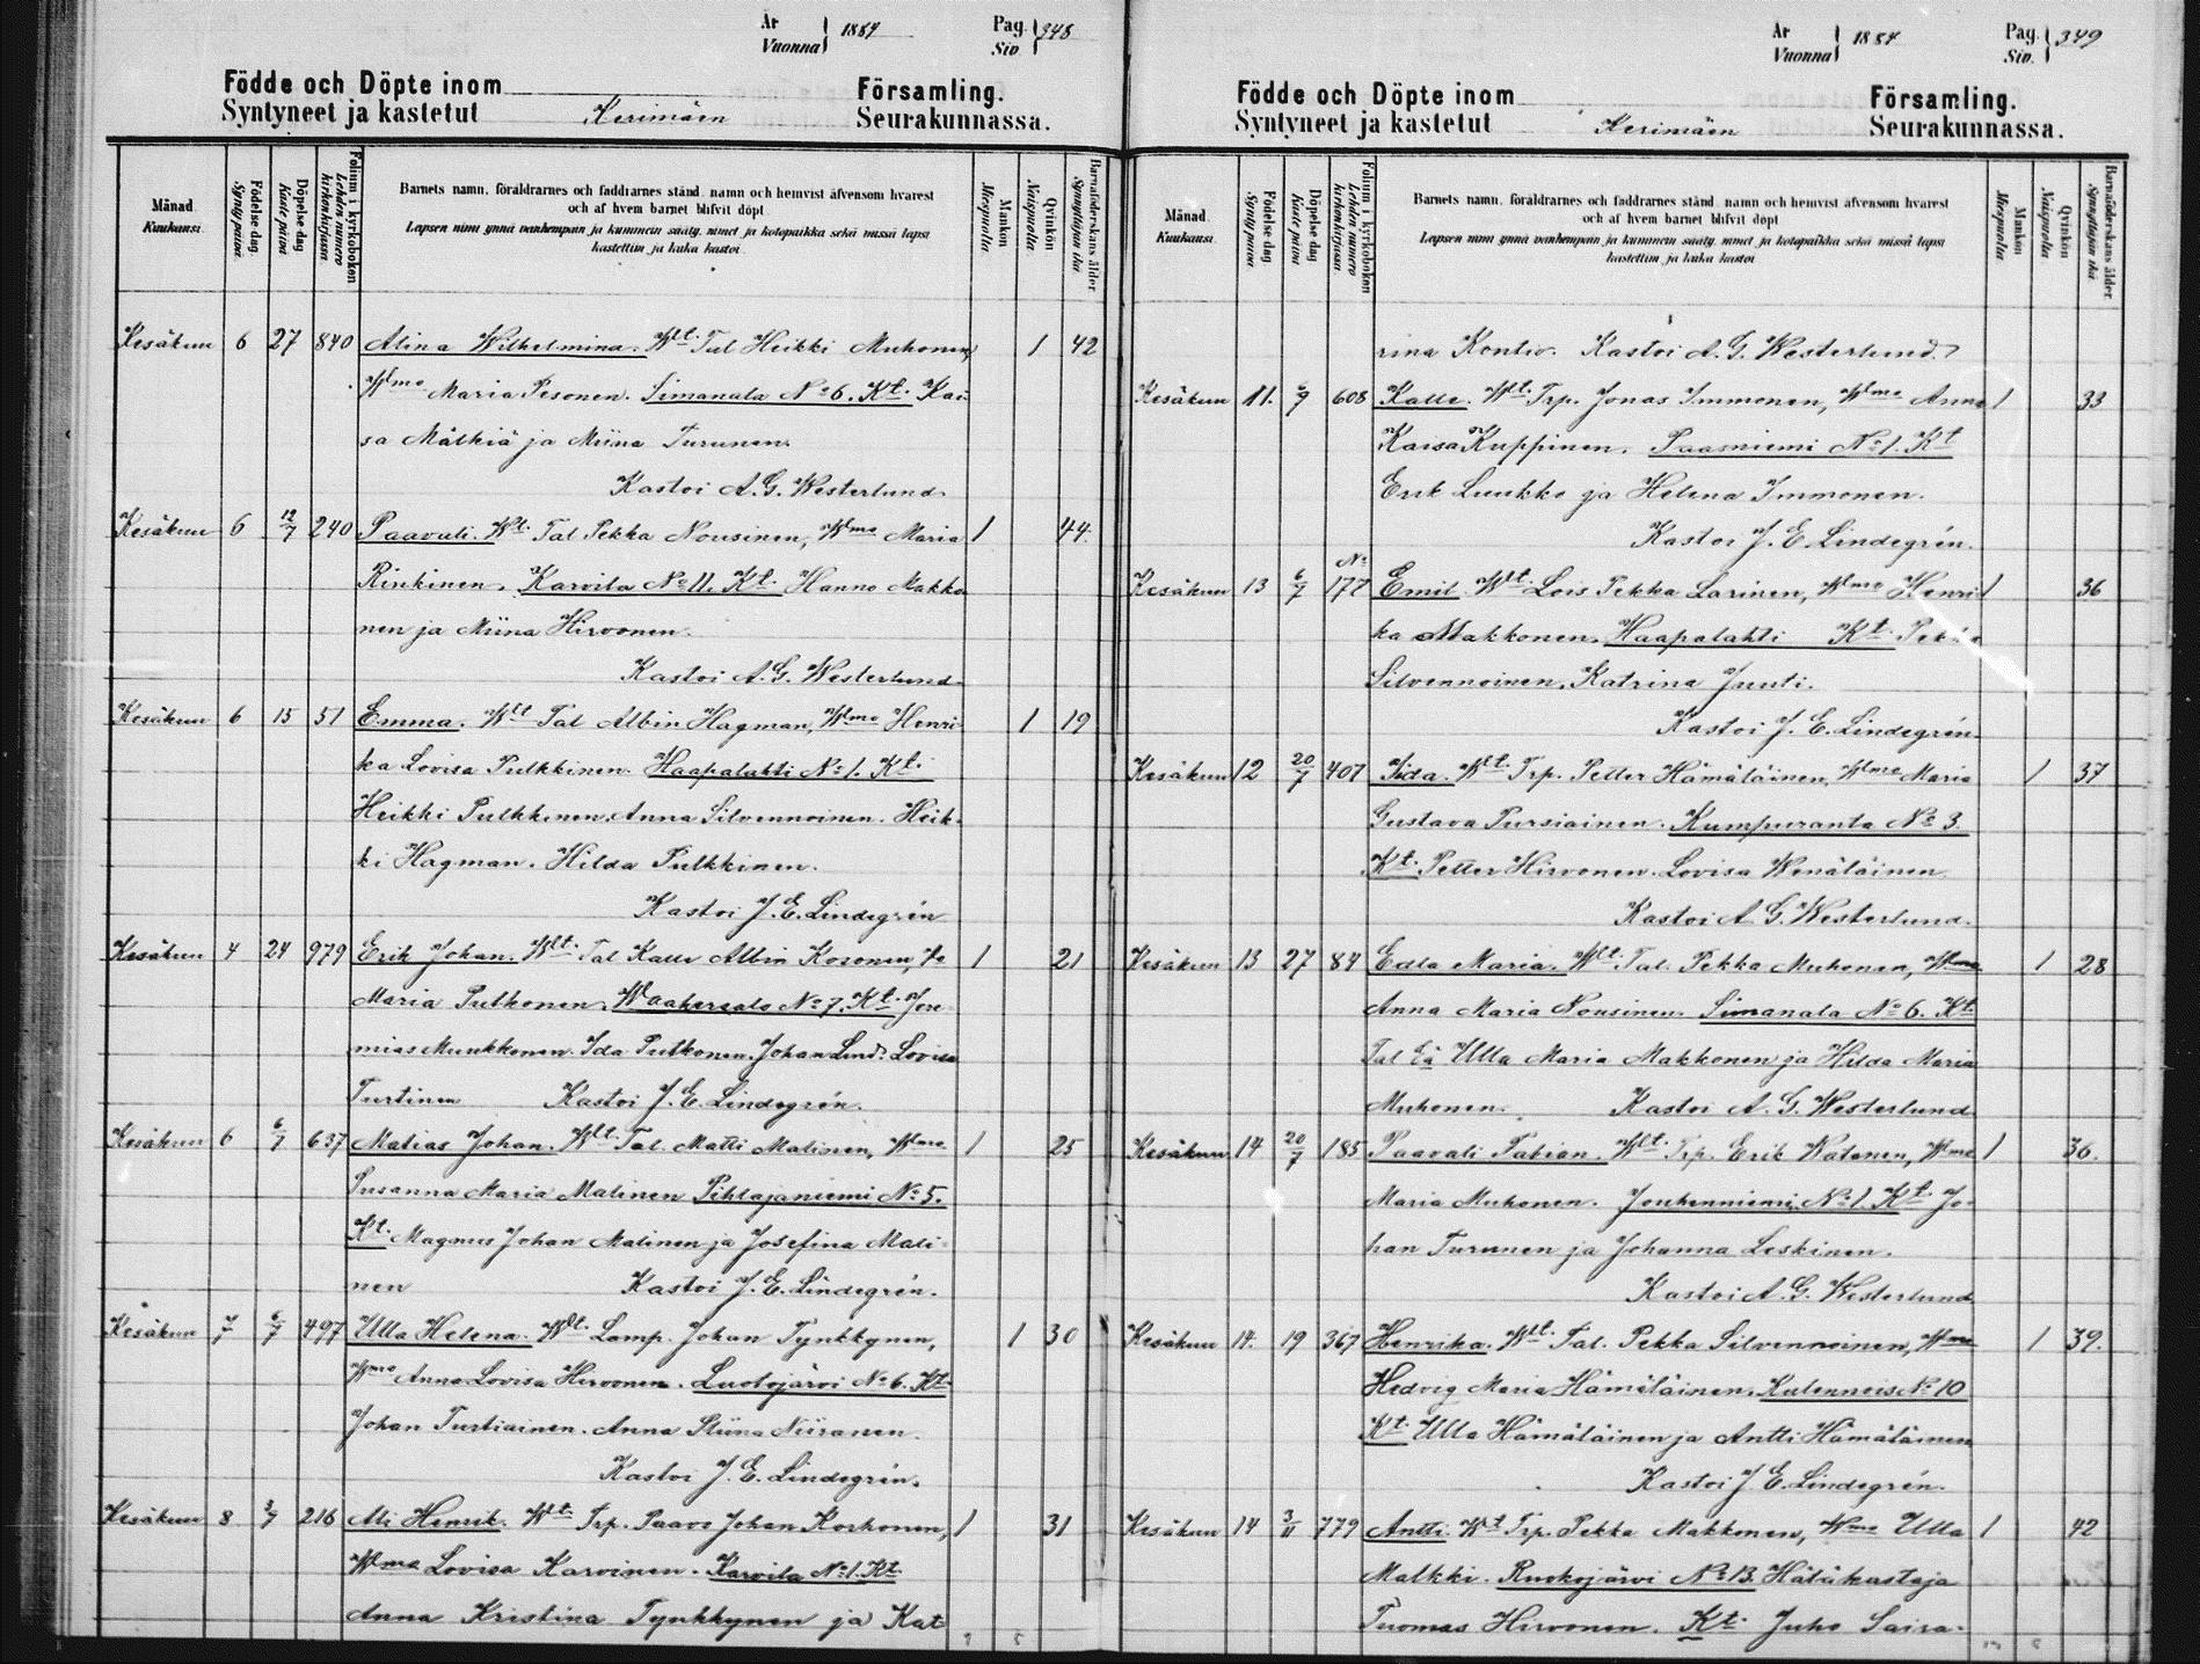 År Vuonna } 1884 Pag. Siv. } 348
Födde och Döpte inom Församling.
Syntyneet ja kastetut Kerimäen Seurakunnassa.
Månad Kuukausi.
Födelse dag Syntypäivä
Döpelse dag Kaste päivä
Folium i kyrkoboken Lehden numero kirkonkirjassa
Barnets namn, föräldrarnes och faddrarnes stånd, namn och hemvist äfvensom hvarest
och af hvem barnet blifvit döpt
Lapsen nimi ynnä vanhempain ja kummein sääty, nimet ja kotopaikka sekä missä lapsi
kastettiin ja kuka kastoi
Mankön Miespuolia
Qvinkön Naispuolia
Barnaföderskans ålder Synnyttäjän ikä
Kesäkuu 6 27 840 Alina Wilhelmina. Wlt. Tal Heikki Muhonen, 1 42
Wlmo Maria Pesonen. Simanala No 6. Kt. Kai-
sa Mälkiä ja Miina Turunen.
Kastoi A. G. Westerlund.
Kesäkuu 6 12/7 240 Paavali. Wlt. Tal Pekka Nousinen, Wlmo Maria 1 44.
Rinkinen. Karvila No 11. Kt. Hanno Makko
nen ja Miina Hirvonen.
Kastoi A. G. Westerlund
Kesäkuu 6 15 51 Emma. Wlt Tal Albin Hagman, Wlmo Henri- 1 19
ka Lovisa Pulkkinen. Haapalahti No 1. Kt.
Heikki Pulkkinen. Anna Silvennoinen. Heik-
ki Hagman. Hilda Pulkkinen.
Kastoi J. E. Lindegrén
Kesäkuu 4 24 979 Erik Johan. Wlt. Tal Kalle Albin Kosonen, 1 21
Maria Putkonen. Waahersalo No 7. Kt. Jere-
mias Muukkonen. Ida Putkonen. Johan Lind. Lovisa
Turtinen Kastoi J. E. Lindegrén.
Kesäkuu 6 6/7 637 Matias Johan. Wlt. Tal. Matti Malinen, Wlmo 1 25
Susanna Maria Malinen Pihlajaniemi No 5.
Kt. Magnus Johan Malinen ja Josefina Mali-
nen Kastoi J. E. Lindegrén.
Kesäkuu 7 6/7 497 Ulla Helena. Wlt. Lamp. Johan Tynkkynen, 1 30
Wmo Anna Lovisa Hirvonen. Luotojärvi No 6. Kt.
Johan Turtiainen. Anna Stiina Niiranen.
Kastoi J. E. Lindegrén.
Kesäkuu 8 3/7 216 Ali Henrik. Wlt. Trp. Paavo Johan Korhonen, 1 31
Wlmo Lovisa Karvinen. Karvila No 1. Kt.
Anna Kristina Tynkkynen ja Kat
År Vuonna } 1884 Pag. Siv. } 349
Födde och Döpte inom Församling.
Syntyneet ja kastetut Kerimäen Seurakunnassa.
Månad Kuukausi
Födelse dag Syntypäivä
Döpelse dag Kaste päivä
Folium i kyrkoboken Lehden numero kirkonkirjassa
Barnets namn, föräldrarnes och faddrarnes stånd, namn och hemvist äfvensom hvarest
och af hvem barnet blifvit döpt
Lapsen nimi ynnä vanhempain ja kummein sääty, nimet ja kotopaikka sekä missä lapsi
kastettiin ja kuka kastoi
Mankön Miespuolia
Qvinkön Naispuolia
Barnaföderskans ålder Synnyttäjän ikä
rina Kontio. Kastoi A. G. Westerlund.
Kesäkuu 11. 6/7 608 Kalle. Wlt. Trp. Jonas Immonen, Wlmo Anna 1 33
Kaisa Kuppinen. Paasniemi No 1. Kt
Erik Luukko ja Helena Immonen.
Kastoi J. E. Lindegrén.
Kesäkuu 13 6/7 No 177 Emil. Wlt. Lois Pekka Larinen, Wlmo Henri- 1 36
ka Makkonen. Haapalahti Kt. Pekka
Silvennoinen. Katrina Juuti.
Kastoi J. E. Lindegrén.
Kesäkuu 12 20/7 407 Iida. Wlt. Trp. Petter Hämäläinen, Wlmo Maria 1 37
Gustava Pursiainen. Kumpuranta No 3.
Kt. Petter Hirvonen. Lovisa Wenäläinen.
Kastoi A. G. Westerlund.
Kesäkuu 13 27 84 Edla Maria. Wlt. Tal. Pekka Muhonen, Wlmo 1 28
Anna Maria Nousinen. Simanala No 6. Kt.
Tal Eä Ulla Maria Makkonen ja Hilda Maria
Muhonen. Kastoi A. G. Westerlund
Kesäkuu 14 20/7 185 Paavali Fabian. Wlt. Trp. Erik Watanen, Wlmo 1 36.
Maria Muhonen. Jouhenniemi No 1. Kt. Jo-
han Turunen ja Johanna Leskinen.
Kastoi A. G. Westerlund
Kesäkuu 14. 19 367 Henrika. Wlt. Tal. Pekka Silvennoinen, Wlmo 1 39.
Hedvig Maria Hämäläinen. Kulennois No 10
Kt. Ulla Hämäläinen ja Antti Hämäläinen
Kastoi J. E. Lindegrén.
Kesäkuu 14 3/11 779 Antti. Wlt Trp. Pekka Makkonen, Wmo Ulla 1 42
Malkki. Ruokojärvi No 13. Hätäkastaja
Tuomas Hirvonen. Kt. Juho Saira-